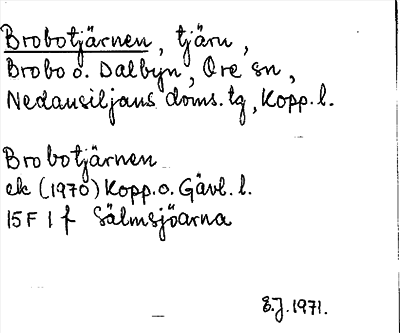 Brobotjärnen, tjärn,
Brobo o. Dalbyn, Ore sn,
Nedansiljans doms. tg, Kopp. l.
Brobotjärnen
ek (1970) Kopp. o. Gävl. l.
15 F 1 f Sälmsjöarna
E.J. 1971.